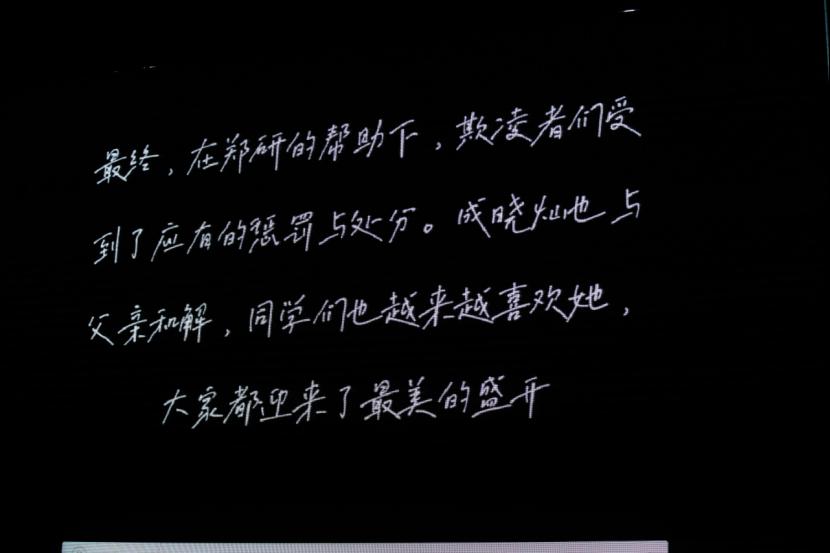 最终，在郑研的帮助下，欺凌者们受
到了应有的惩罚与处分。成晓灿也与
父亲和解，同学们也越来越喜欢她，
大家都迎来了最美的盛开